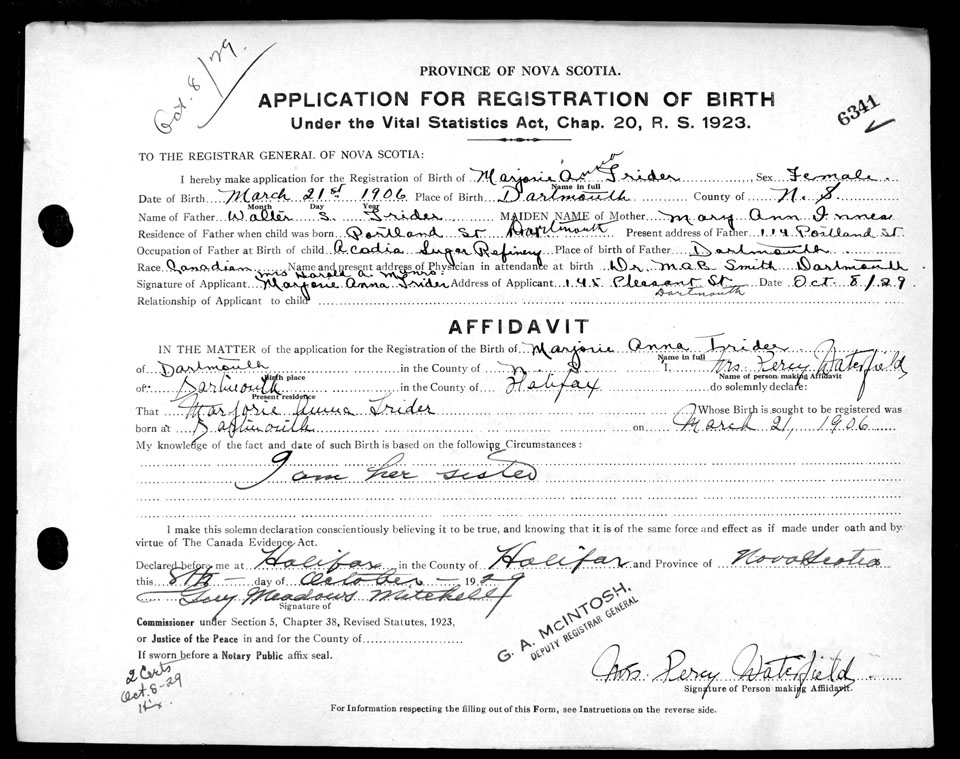 Oct. 8/29.
PROVINCE OF NOVA SCOTIA.
APPLICATION FOR REGISTRATION OF BIRTH
Under the Vital Statistics Act, Chap. 20, R. S. 1923.
6341
TO THE REGISTRAR GENERAL OF NOVA SCOTIA:
I hereby make application for the Registration of Birth of Marjorie Anna Trider Sex Female
Name in full
Date of Birth March 21st 1906 Place of Birth Dartmouth County of N. S.
Month Day Year
Name of Father Walter S. Trider MAIDEN NAME of Mother Mary Ann Innes
Residence of Father when child was born Portland St Dartmouth Present address of Father 114 Portland St.
Occupation of Father at Birth of child Acadia Sugar Refinery Place of birth of Father Dartmouth
Race Canadian Name and present address of Physician in attendance at birth Dr. M.A.B. Smith Dartmouth
Mrs Harold A. Munro
Signature of Applicant Marjorie Anna Trider Address of Applicant 145 Pleasant St. Dartmouth Date Oct 8/29
Relationship of Applicant to child
AFFIDAVIT
IN THE MATTER of the application for the Registration of the Birth of Marjorie Anna Trider
Name in full
of Dartmouth in the County of N. S. I, Mrs Percy Waterfield
Birth place Name of person making Affidavit
of Dartmouth in the County of Halifax do solemnly declare:
Present residence
That Marjorie Anna Trider Whose Birth is sought to be registered was
born at Dartmouth on March 21, 1906
My knowledge of the fact and date of such Birth is based on the following Circumstances:
I am her sister
I make this solemn declaration conscientiously believing it to be true, and knowing that it is of the same force and effect as if made under oath and by
virtue of The Canada Evidence Act.
Declared before me at Halifax in the County of Halifax and Province of Nova Scotia
this 8th day of October 1929
Meadows Mitchell
Signature of
Commissioner under Section 5, Chapter 38, Revised Statutes, 1923,
or Justice of the Peace in and for the County of
If sworn before a Notary Public affix seal.
G. A. McINTOSH,
DEPUTY REGISTRAR GENERAL
2 Certs
Oct. 8-29
Mrs. Percy Waterfield
Signature of Person making Affidavit.
For Information respecting the filling out of this Form, see Instructions on the reverse side.